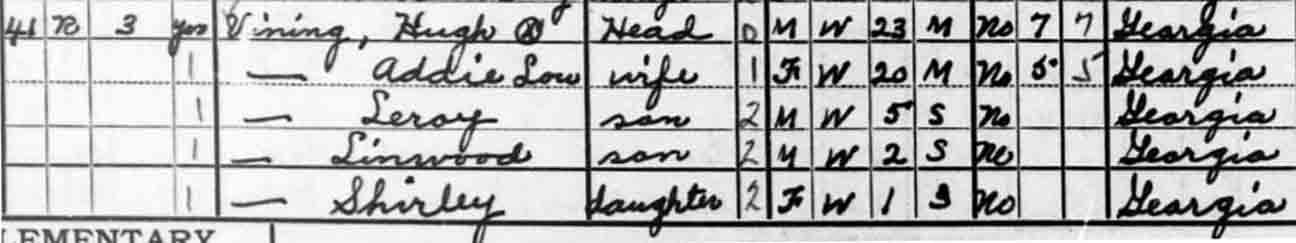 41 R 3 yes Vining, Hugh ⓧ Head 0 M W 23 M No 7 7 Georgia
1 — Addie Lou wife 1 F W 20 M No 5 5 Georgia
1 — Leroy son 2 M W 5 S No Georgia
1 — Linwood son 2 M W 2 S No Georgia
1 — Shirley daughter 2 F W 1 S No Georgia
LEMENTARY